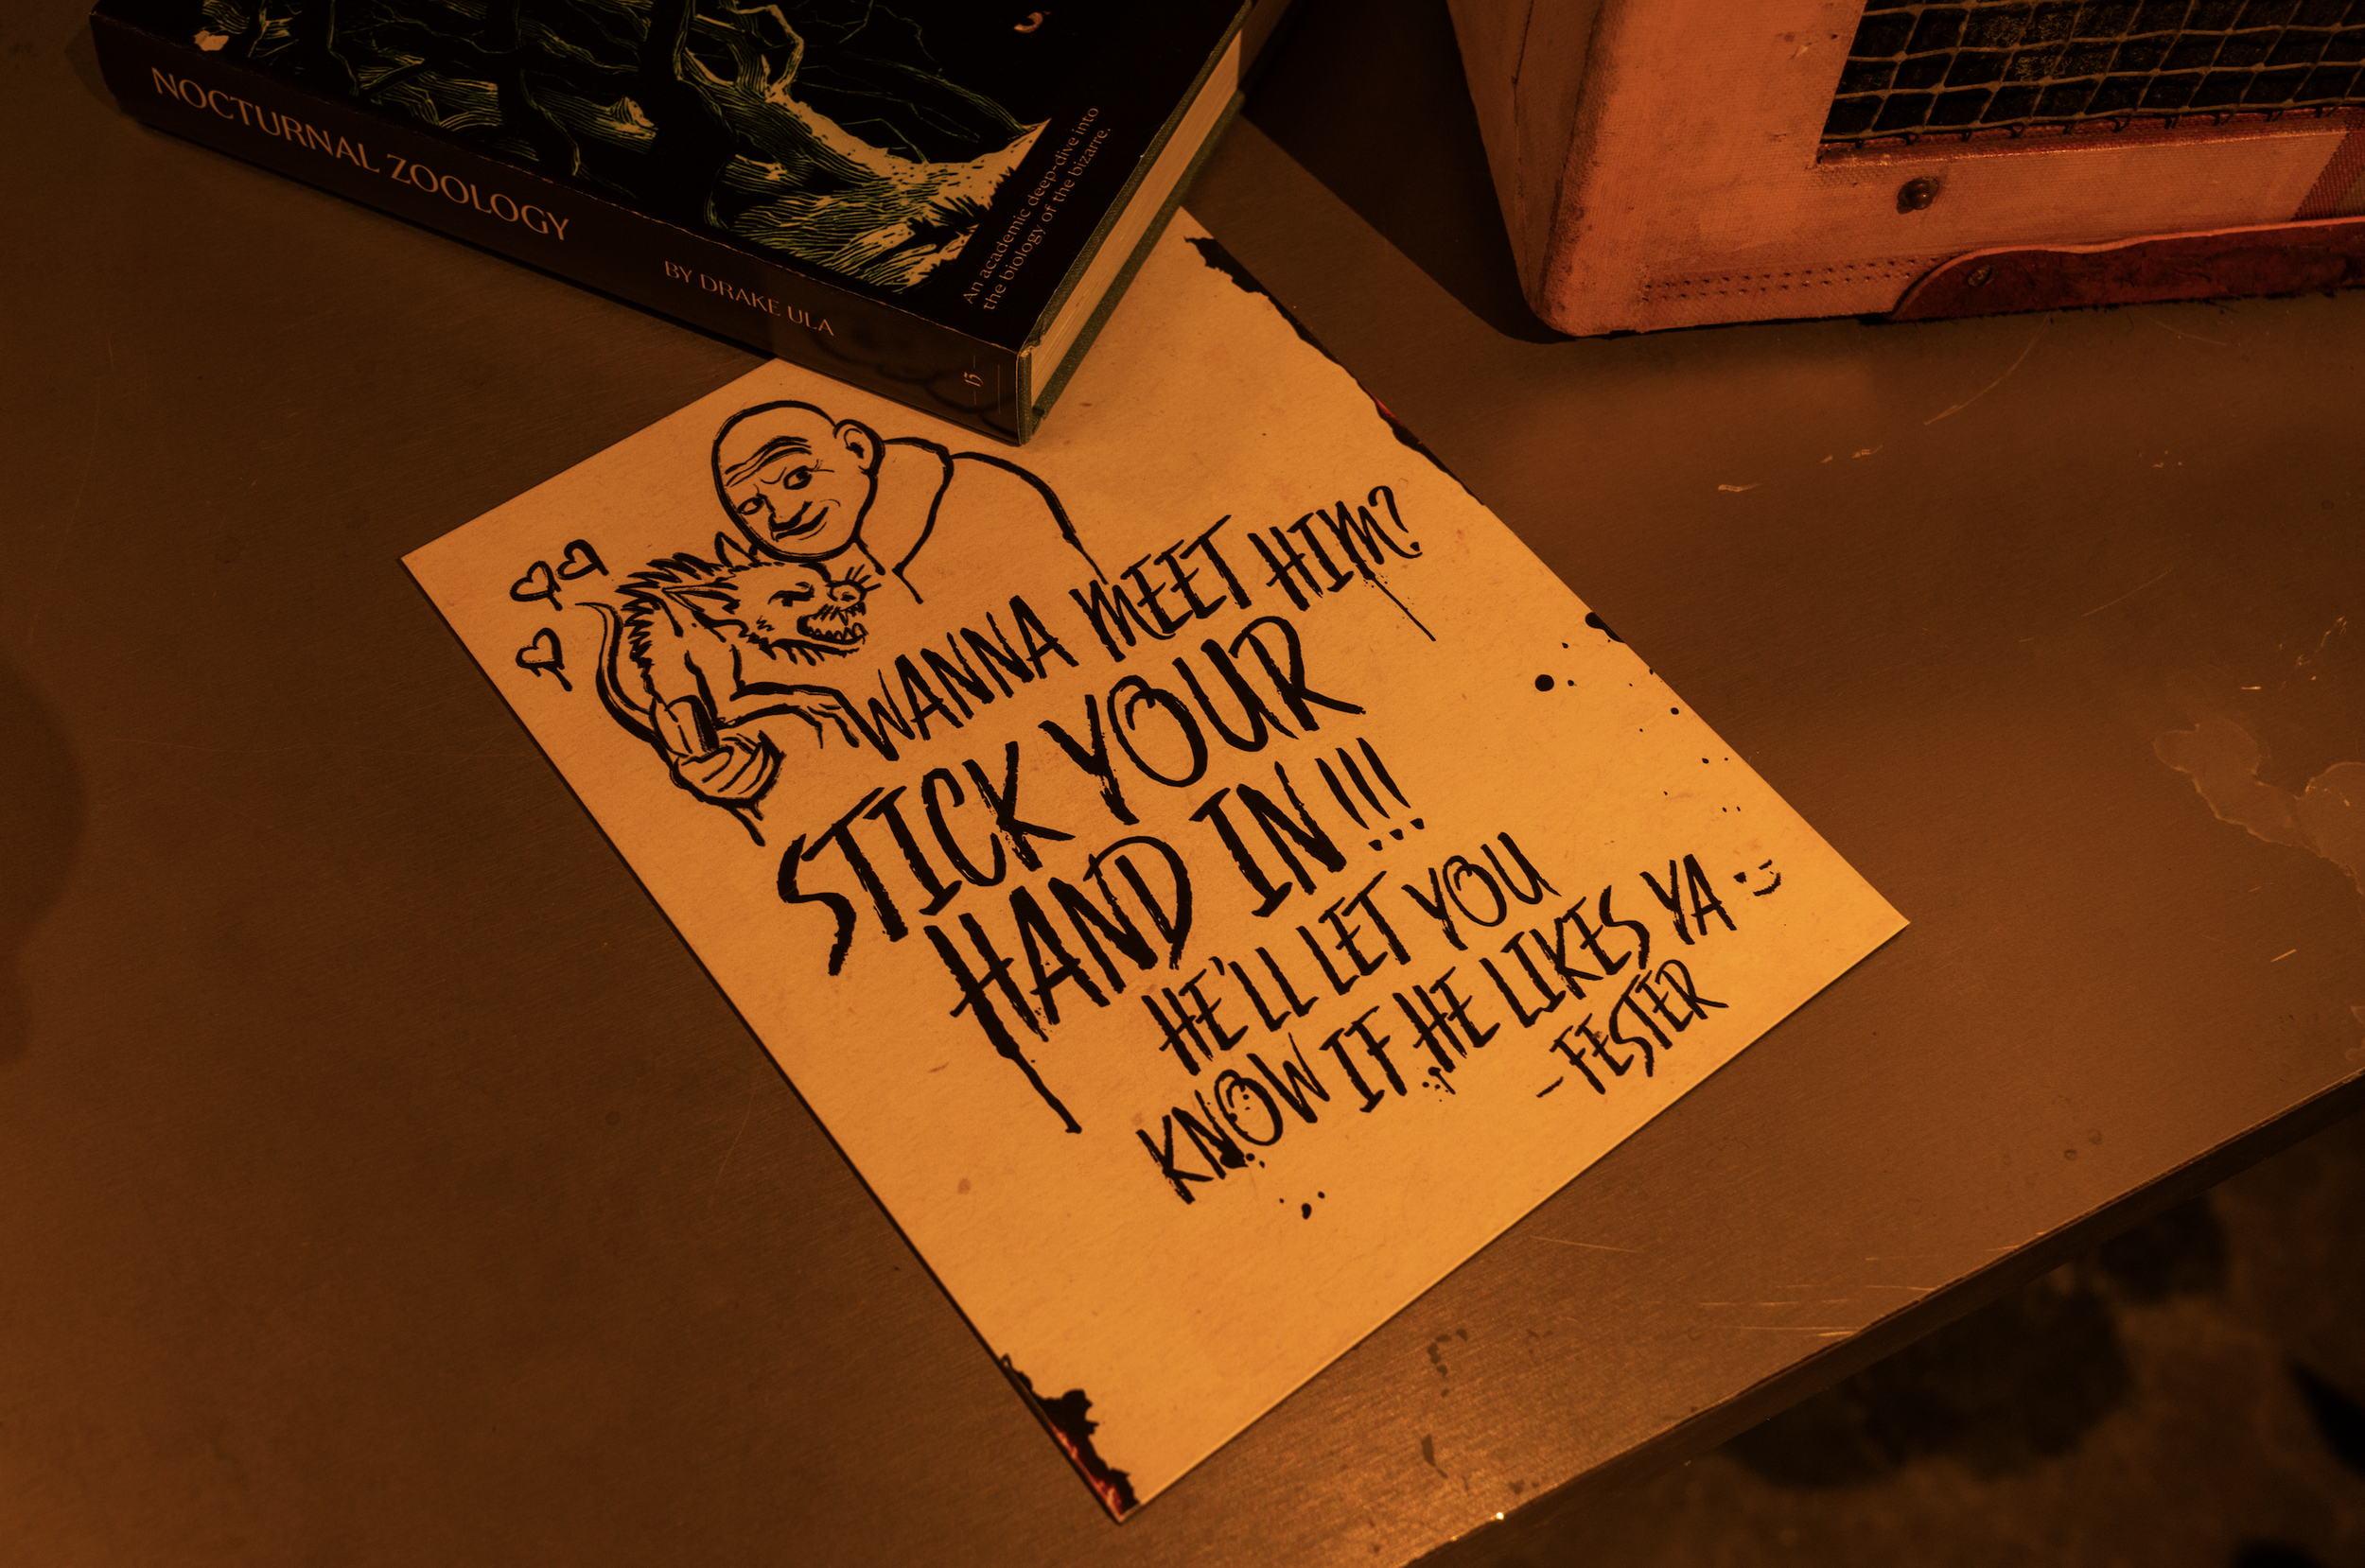 NOCTURNAL ZOOLOGY
BY DRAKE ULA
An academic deep-dive into
the biology of the bizarre.
WANNA MEET HIM?
STICK YOUR
HAND IN!!!
HE'LL LET YOU
KNOW IF HE LIKES YA :)
-FESTER